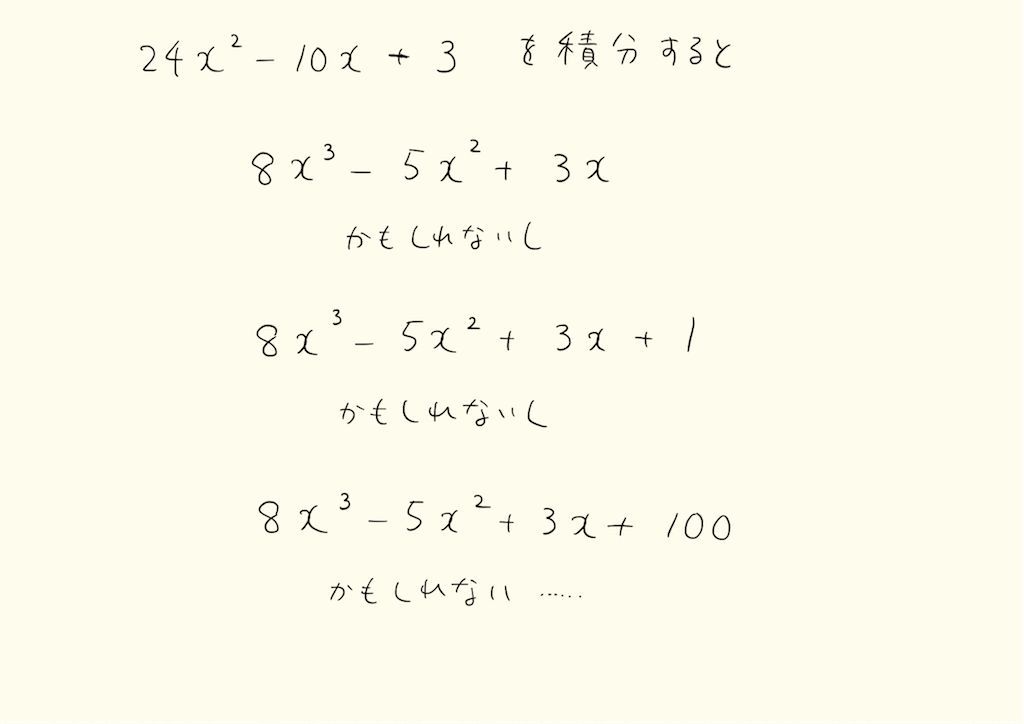 24x² - 10x + 3 を積分すると
8x³ - 5x² + 3x
かもしれないし
8x³ - 5x² + 3x + 1
かもしれないし
8x³ - 5x² + 3x + 100
かもしれない……